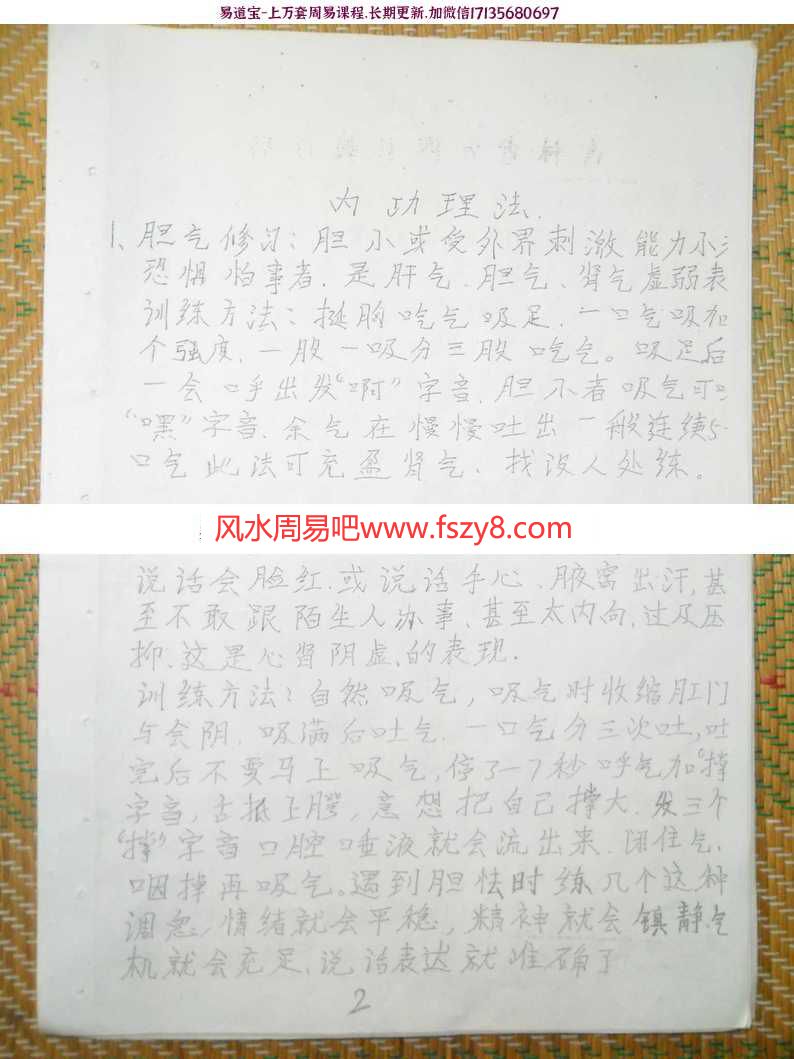 易道宝-上万套周易课程.长期更新.加微信17135680697
内功理法.
1、胆气修习：胆小或受外界刺激能力小
恐惧怕事者.是肝气.胆气、肾气虚弱表
训练方法：挺胸吃气吸足.一口气吸加
个强度.一股一吸分三股吃气。吸足后
一会呼出发“啊”字音.胆小者吸气可
“嘿”字音.余气在慢慢吐出一般连续5
口气此法可充盈肾气、找没人处练。
风水周易吧www.fszy8.com
说话会脸红.或说话手心、腋窝出汗,甚
至不敢跟陌生人办事、甚至太内向,过及压
抑.这是心肾阴虚、的表现.
训练方法：自然吸气，吸气时收缩肛门
与会阴.吸满后吐气.一口气分三次吐,吐
完后不要马上吸气,停3—7秒呼气加“撑
字音,舌抵上腭,意想把自己撑大.发三个
“撑”字音口腔唾液就会流出来.闭住气.
咽掉再吸气。遇到胆怯时练几个这种
调息,情绪就会平稳,精神就会镇静.气
机就会充足、说话表达就准确了
2